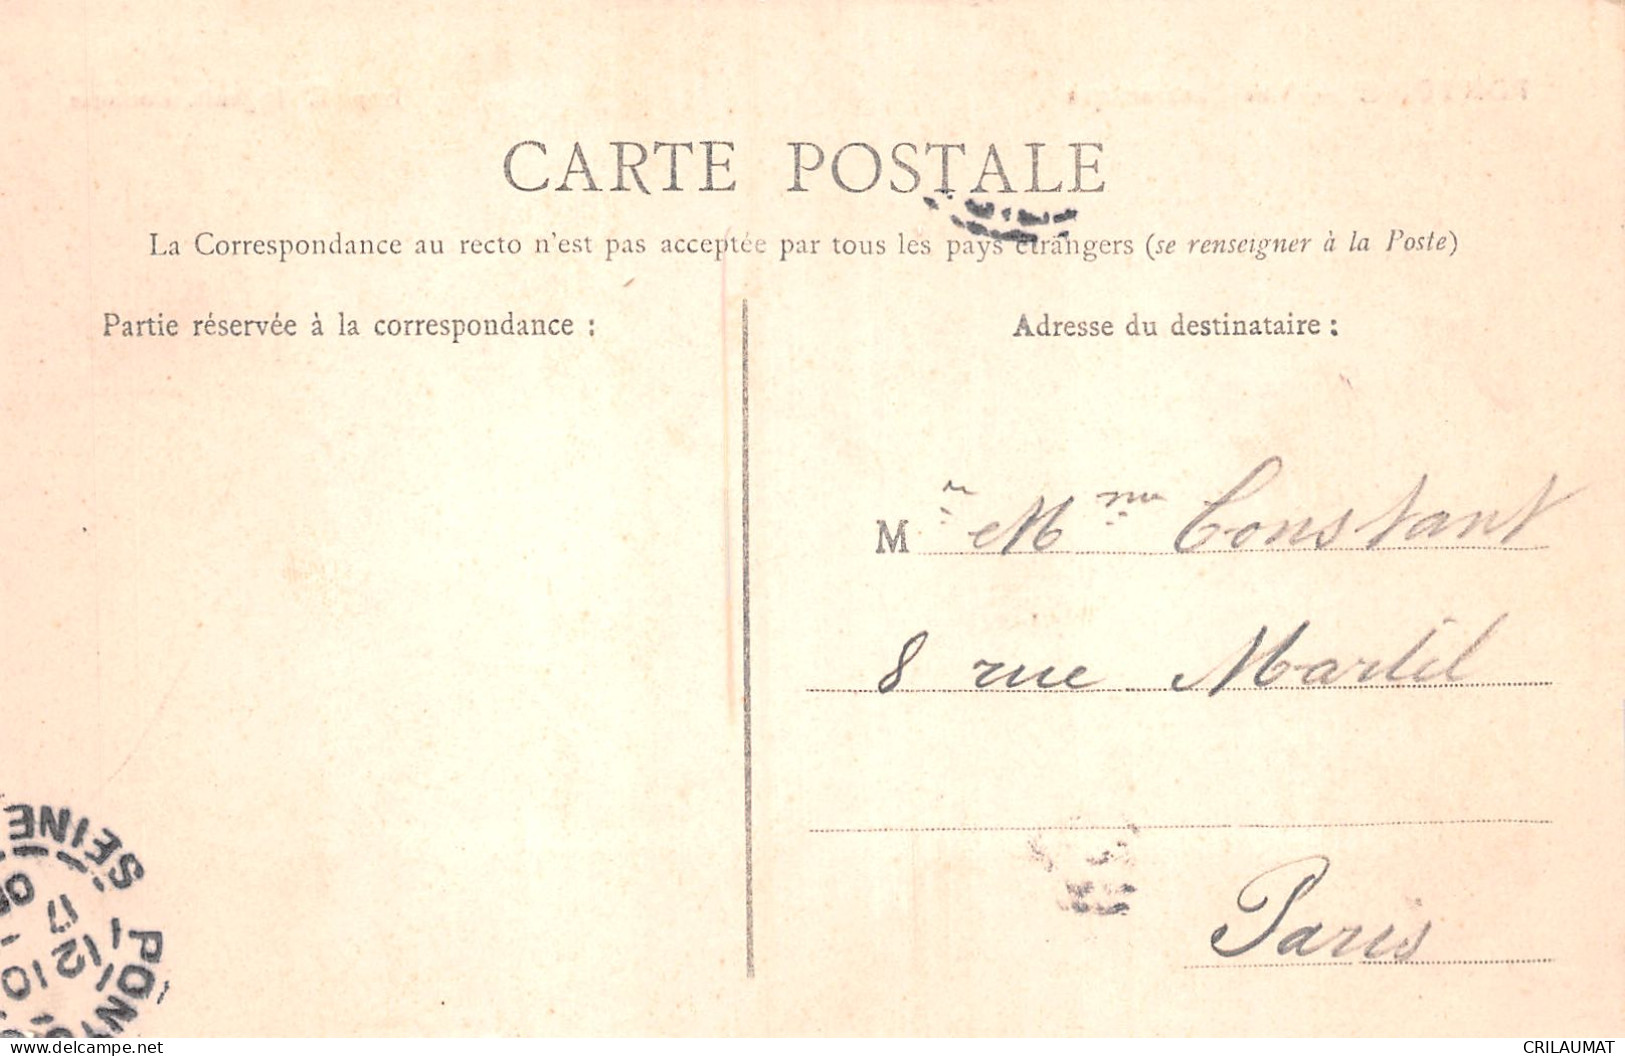 CARTE POSTALE
La Correspondance au recto n'est pas acceptée par tous les pays étrangers (se renseigner à la Poste)
Partie réservée à la correspondance :
Adresse du destinataire :
M r et Mme Constant
8 rue Martel
Paris
SEINE
17
12
10
PONTO
www.delcampe.net
CRILAUMAT